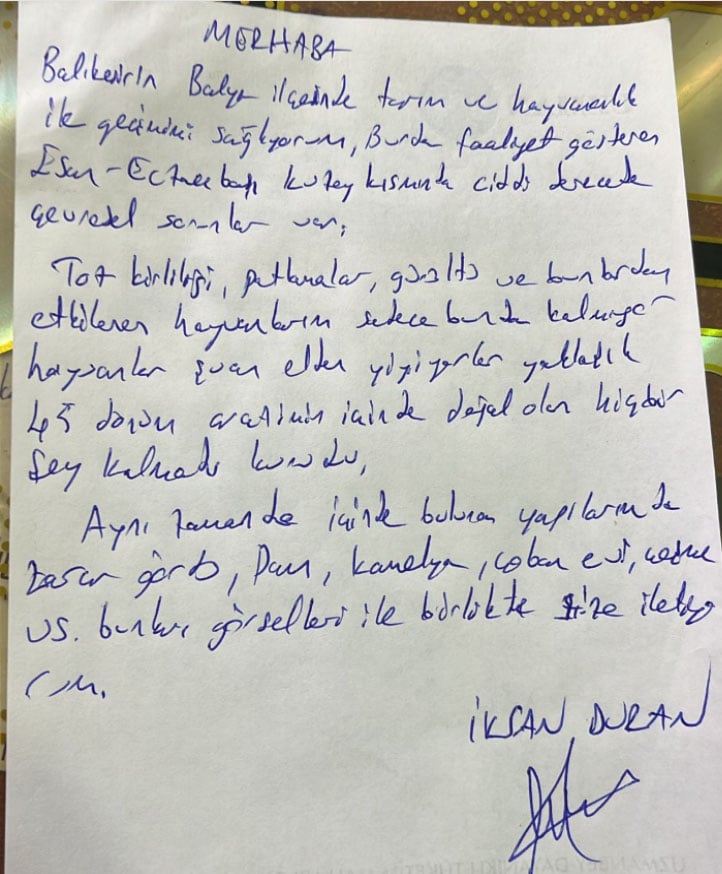 MERHABA
Balıkesirin Balya ilçesinde tarım ve hayvancılık
ile geçimimi sağlıyorum, Burda faaliyet gösteren
Esan-Eczacıbaşı kuzey kısmında ciddi derecede
çevresel sorunlar var,
Toz kirliliği, patlamalar, gürültü ve bunlardan
etkilenen hayvanlarım sadece bunla kalmıyor
hayvanlar şuan elden yiyiyorlar yaklaşık
45 dönüm arazimin içinde doğal olan hiçbir
şey kalmadı kurudu,
Aynı zamanda içinde bulunan yapılarımda
zarar gördü, Dam, kamelya, çoban evi, çeşme
vs. bunları görselleri ile birlikte size iletiyo
rum.
İKSAN DURAN